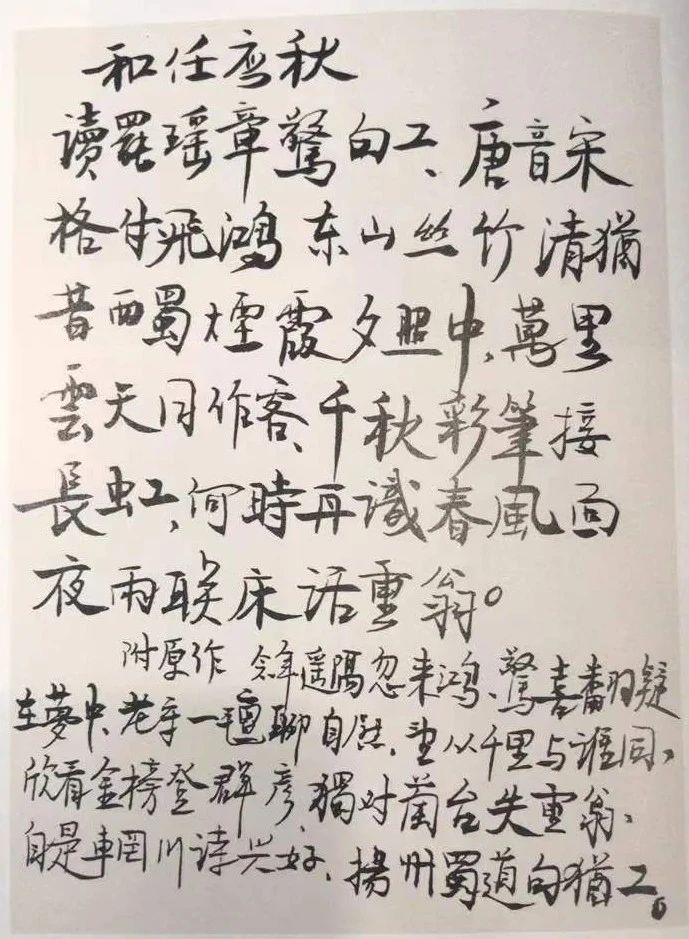 和任应秋
讀罷瑶章驚句工、唐音宋
格付飛鴻东山丝竹清猶
昔西蜀煙霞夕照中、萬里
雲天同作客、千秋彩筆接
長虹，何時再識春風面
夜雨联床话重翁。
附原作 音遥隔忽来鴻、驚喜翻疑
在夢中、老去一氊聊自然，以千里与谁同、
欣看金榜登群彦、獨对蘭台失重翁、
自是輞川诗兴好、揚州蜀道句猶工。